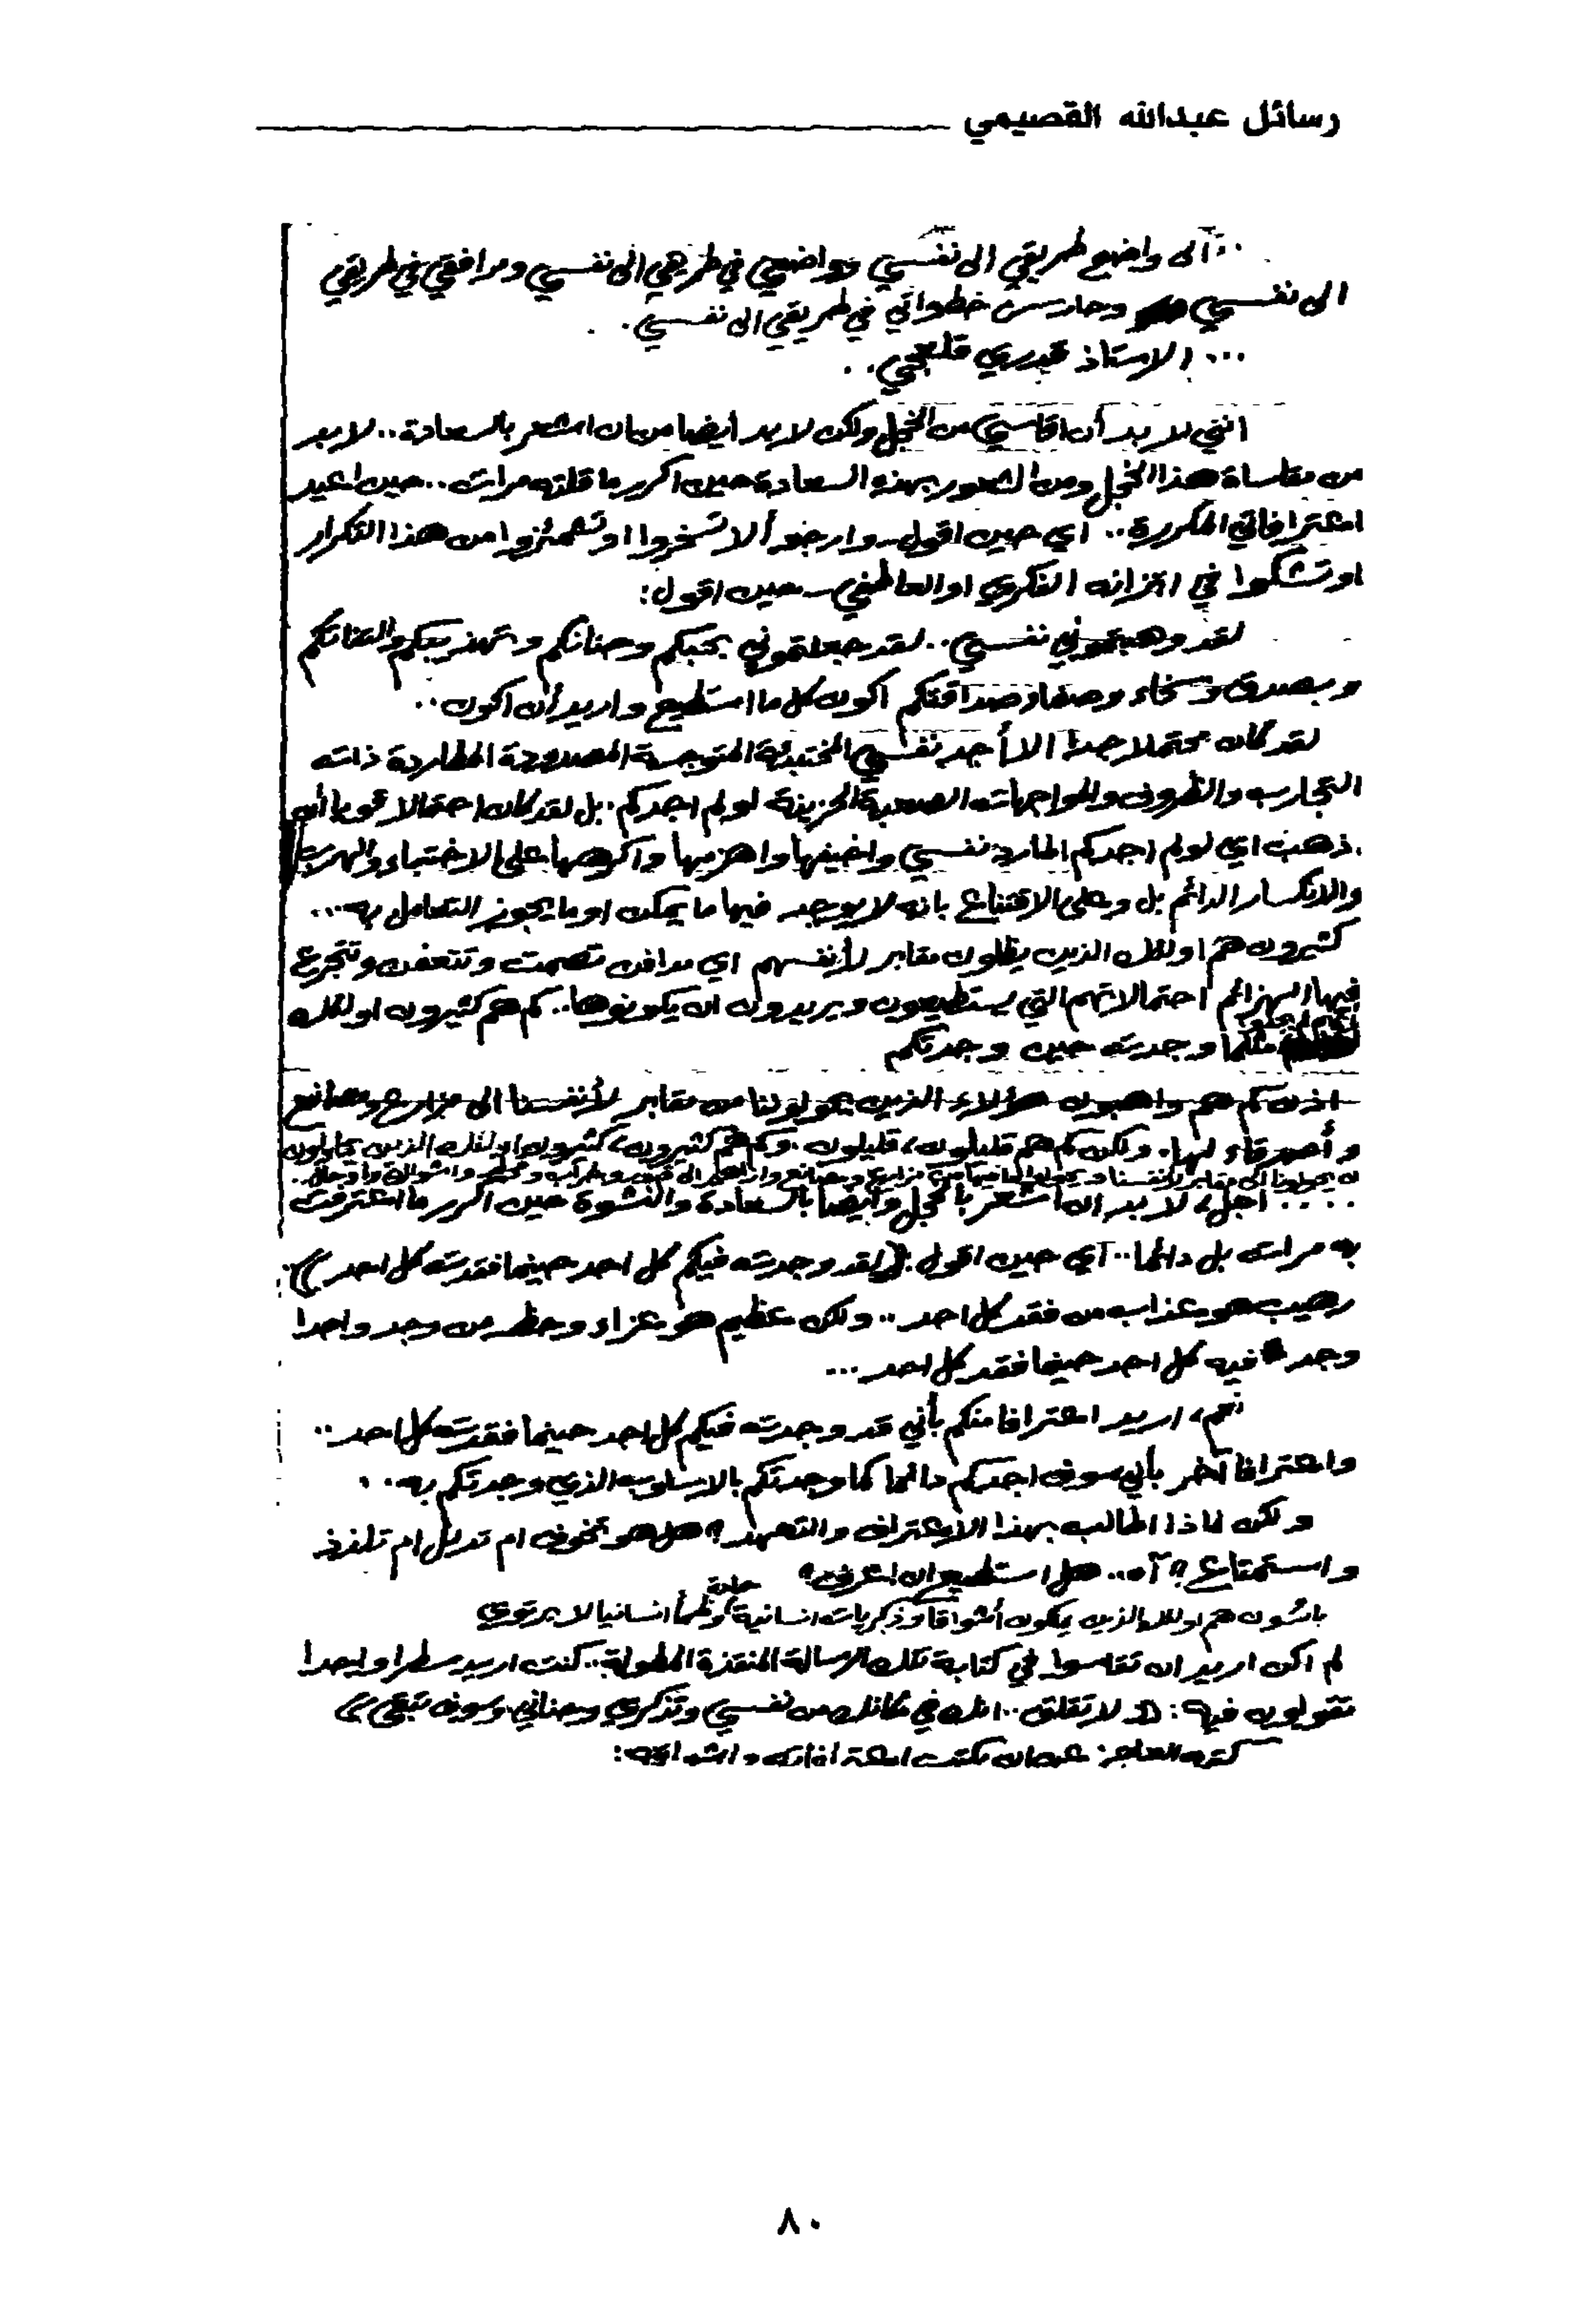 رسائل عبدالله القصيمي
.. الى واضع طريقي الى نفسي وواضعي في طريقي الى نفسي ومرافقي في طريقي
الى نفسي وحارس خطواتي في طريقي الى نفسي..
... الاستاذ قدري قلعجي..
انني لا بد أن اقاسي من الخجل ولكن لا بد أيضا من ان اشعر بالسعادة.. لا بد
من مقاساة هذا الخجل ومن الشعور بهذه السعادة حين اكرر ما قلته مرات.. حين اعيد
اعترافاتي المكررة.. اي حين اقول - وارجو ألا تسخروا او تشمئزوا من هذا التكرار
او تشكوا في اتزانه الفكري او العاطفي - حين اقول:
لقد وهبتموني نفسي.. لقد جعلتموني بحبكم وحنانكم وتهذيبكم والتفاتكم
وبصدق وسخاء وصفاء صداقتكم اكون كل ما استطيع واريد أن اكون..
لقد كان محتملا جدا الا أجد نفسي المختبئة المتوجسة المصدودة المطاردة ذاته
التجارب والظروف والمواجهات الصعبة الحزينة لو لم اجدكم. بل لقد كان احتمالا قويا أن
اذهب اي لو لم اجدكم اطارد نفسي واخيفها واهزمها واكرهها على الاختباء والهرب
والانكسار الدائم بل وعلى الاقتناع بانه لا يوجد فيها ما يمكن او ما يجوز التعامل به...
كثيرون هم اولئك الذين يظلون مقابر لأنفسهم اي مدافن تصمت وتتعفن وتتجرع
فيها الهزائم احتمالاتهم التي يستطيعون ويريدون ان يكونوها.. كم هم كثيرون اولئك
مثلما وجدت حين وجدتكم
اذن كم هم واهبون هؤلاء الذين يحولوننا من مقابر لأنفسنا الى مزارع ومصانع
وأصدقاء لها. ولكن كم هم قليلون، قليلون. وكم هم كثيرون، كثيرون اولئك الذين يحاولون
ان يحولونا الى مقابر لأنفسنا
.... اجل، لا بد ان اشعر بالخجل وايضا بالسعادة والنشوة حين اكرر ما اعترفت
به مرات بل دائما.. اي حين اقول: (( لقد وجدت فيكم كل احد حينما فقدت كل احد ))..
رهيب هو عذاب من فقد كل احد.. ولكن عظيم هو عزاء وحظ من وجد واحدا
وجد فيه كل احد حينما فقد كل احد...
نعم، اريد اعترافا منكم بأني قد وجدت فيكم كل احد حينما فقدت كل احد..
واعترافا آخر بأني سوف اجدكم دائما كما وجدتكم بالاسلوب الذي وجدتكم به..
ولكن لماذا اطالب بهذا الاعتراف والتعهد؟ هل هو تخوف ام تدلل ام تلذذ
واستمتاع؟ آه.. هل استطيع ان اعرف؟
بائسون هم اولئك الذين يملكون أشواقا وذكريات انسانية حادة وظمأ انسانيا لا يرتوي
لم اكن اريد ان تقاسوا في كتابة تلك الرسالة المنقذة المطولة.. كنت اريد سطرا واحدا
تقولون فيه: (( لا تقلق.. انك في مكانك من نفسي وتذكري وحناني وسوف تبقى ))
كتبه العاجز عن ان يكتب اعترافاته واشواقه:
٨٠